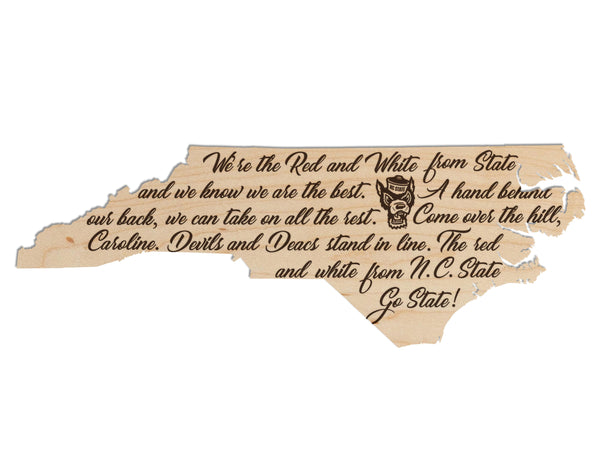 We're the Red and White from State
and we know we are the best. A hand behind
our back, we can take on all the rest. Come over the hill,
Caroline. Devils and Deacs stand in line. The red
and white from N.C. State
Go State!
NC STATE